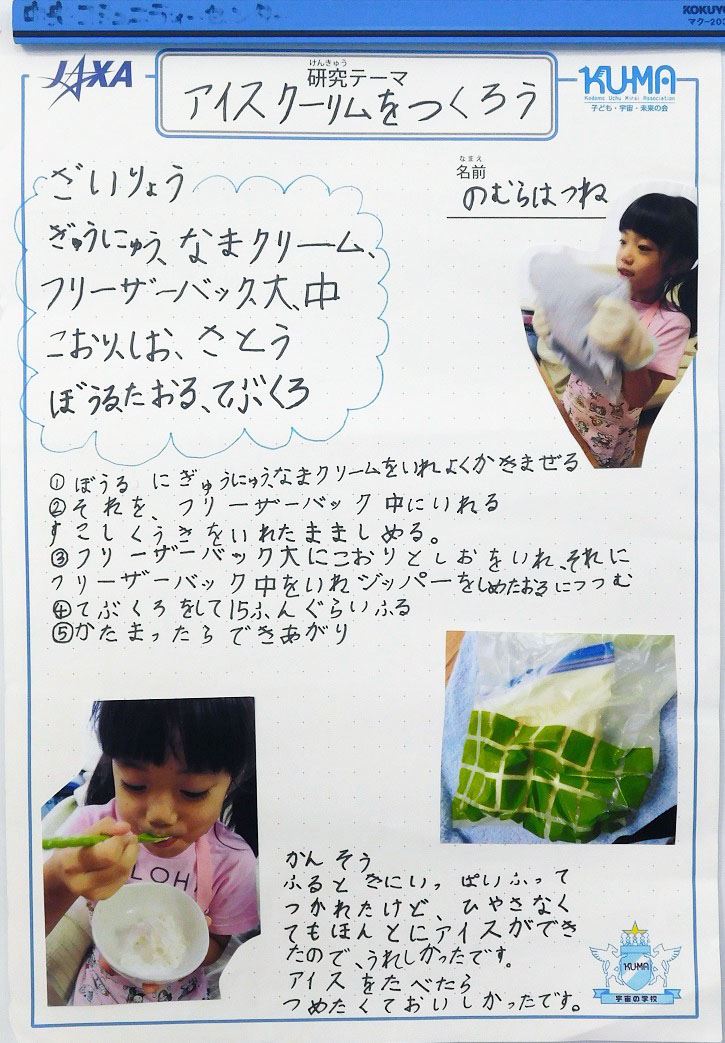 KOKUYO
JAXA
けんきゅう
研究テーマ
アイスクーリムをつくろう
KU-MA
Kodomo Uchu Mirai Association
子ども・宇宙・未来の会
なまえ
名前
のむらはつね
ざいりょう
ぎゅうにゅう、なまクリーム、
フリーザーバック、大、中
こおり、しお、さとう
ぼうる、たおる、てぶくろ
①ぼうる にぎゅうにゅう、なまクリームをいれよくかきまぜる
②それを、フリーザーバック中にいれる
すこしくうきをいれたまましめる。
③フリーザーバック大にこおりとしおをいれ、それに
フリーザーバック中をいれジッパーをしめたおるにつつむ
④てぶくろをして15ふんぐらいふる
⑤かたまったらできあがり
かんそう
ふるときにいっぱいふって
つかれたけど、ひやさなく
てもほんとにアイスができ
たので、うれしかったです。
アイスをたべたら
つめたくておいしかったです。
KUMA
宇宙の学校